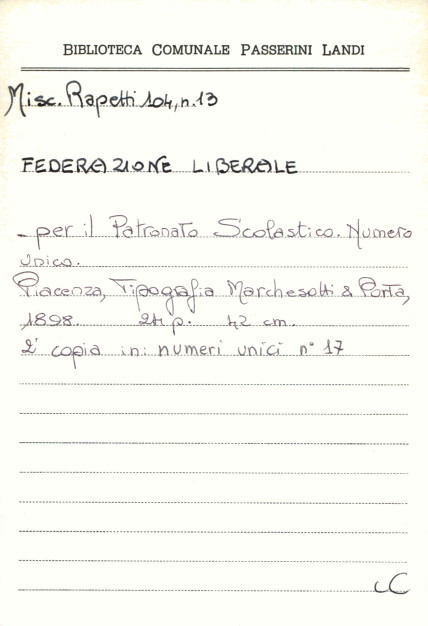 BIBLIOTECA COMUNALE PASSERINI LANDI
Misc. Rapetti 104, n. 13
FEDERAZIONE LIBERALE
- per il Patronato Scolastico. Numero
unico.
Piacenza, Tipografia Marchesotti & Porta,
1898. 24 p. 42 cm.
2ª copia in: numeri unici n° 17